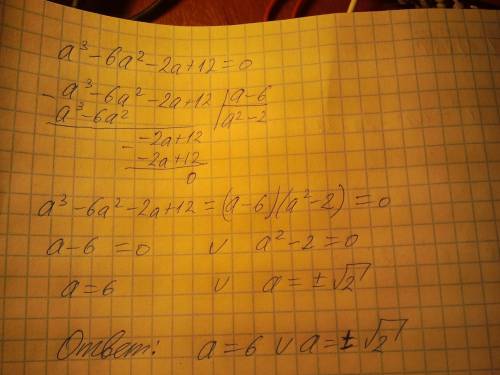 a³ - 6a² - 2a + 12 = 0
- a³ - 6a² - 2a + 12 | a - 6
a³ - 6a² | a² - 2
- -2a + 12
-2a + 12
0
a³ - 6a² - 2a + 12 = (a - 6)(a² - 2) = 0
a - 6 = 0 ∪ a² - 2 = 0
a = 6 ∪ a = ±√2
Ответ: a = 6 ∪ a = ±√2